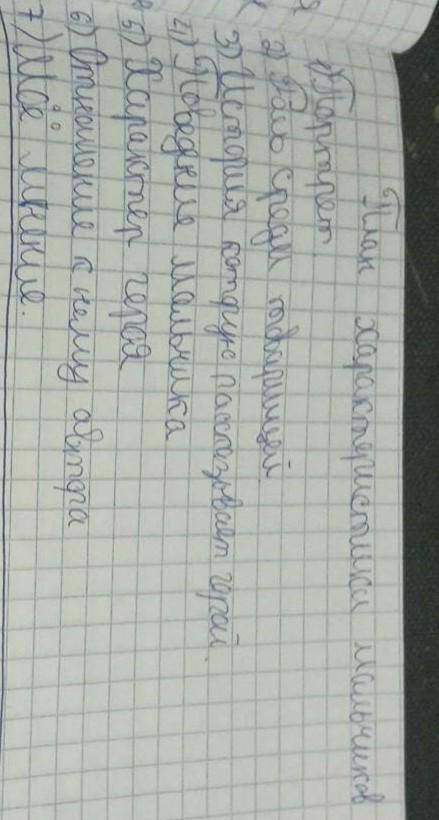 План характеристики мальчиков
1) Портрет
2) Роль среди товарищей.
3) История которую рассказывает герой.
4) Поведение мальчика
5) Характер героя
6) Отношение к нему автора
7) Моё мнение.